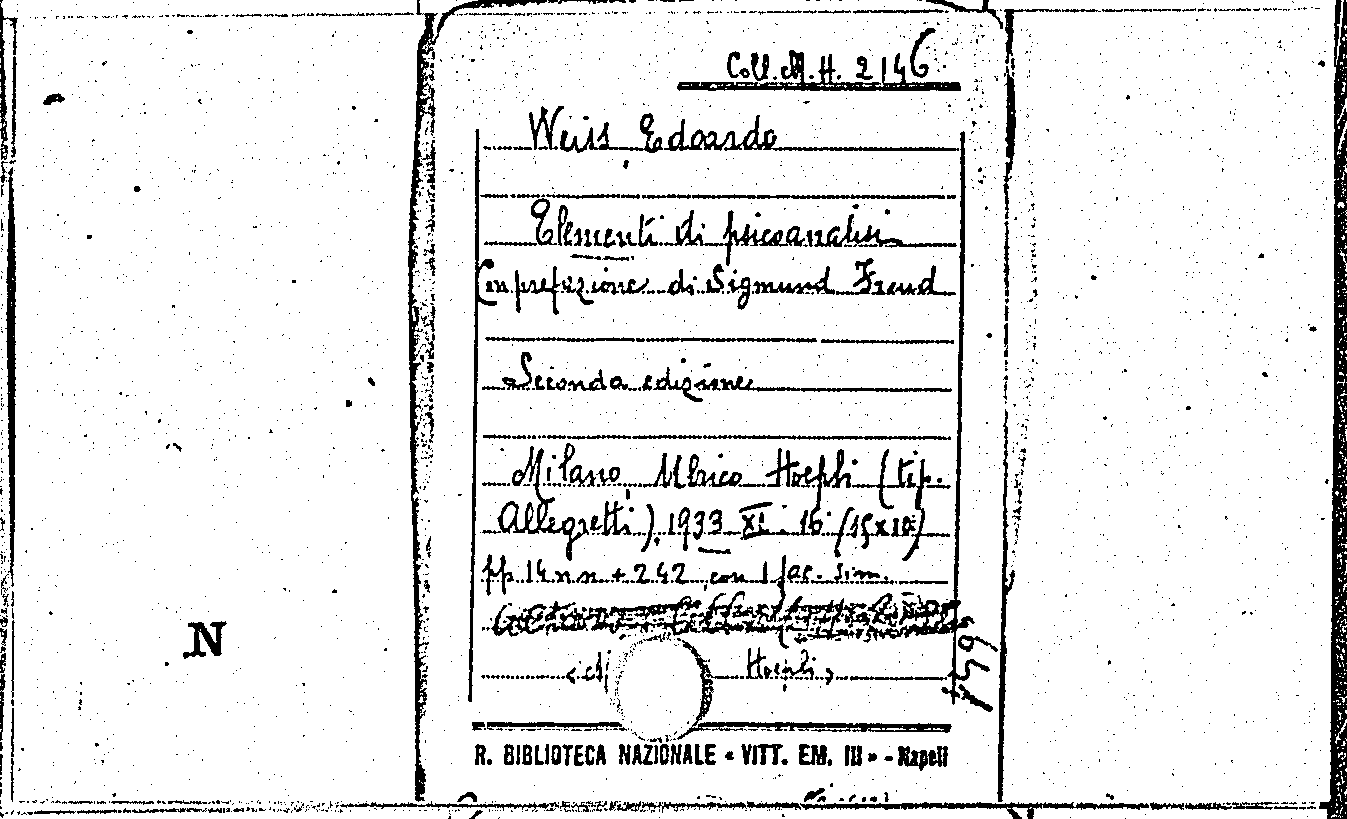 Coll. M. H. 2146
Weiss, Edoardo
Elementi di psicoanalisi
Con prefazione di Sigmund Freud
Seconda edizione
Milano, Ulrico Hoepli (tip.
Allegretti), 1933 XI. 16° (15x10)
pp. 14 n n + 242, con 1 fac. sim.
Hoepli»
N
R. BIBLIOTECA NAZIONALE « VITT. EM. III » - Napoli